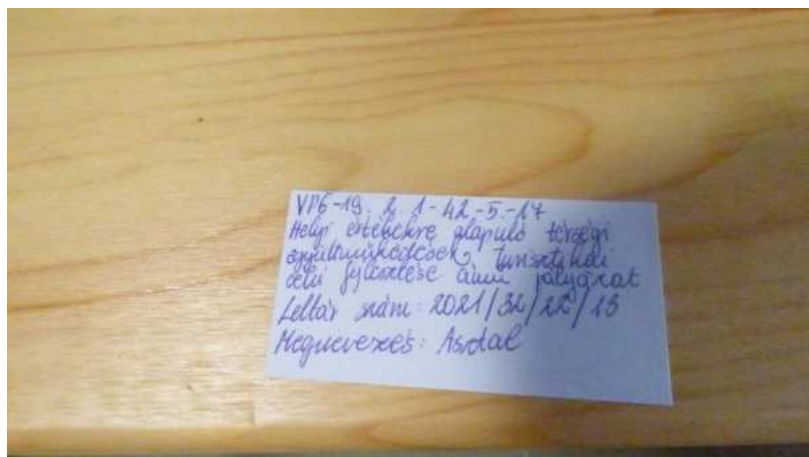 VP6-19. 2. 1-42.-5.-17
Helyi értékekre alapuló térségi
együttműködések, turisztikai
célú fejlesztése című pályázat
Leltár szám: 2021/32/22/13
Megnevezés: Asztal